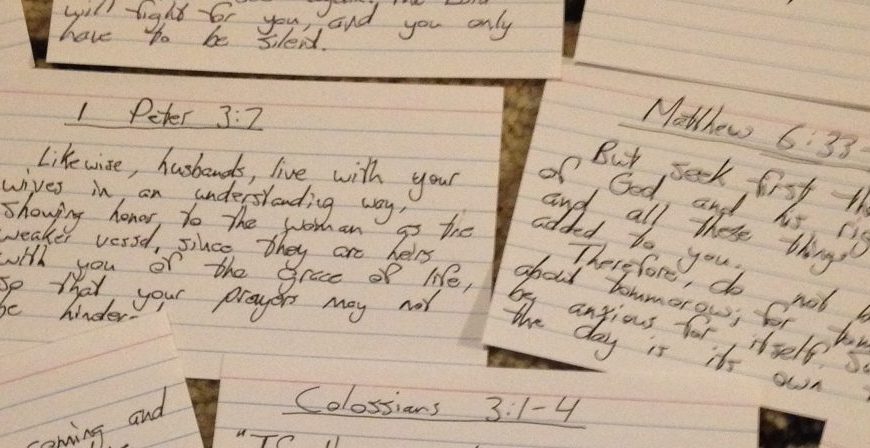 will fight for you, and you only
have to be silent.
1 Peter 3:7
Likewise, husbands, live with your
wives in an understanding way,
showing honor to the woman as the
weaker vessel, since they are heirs
with you of the grace of life,
so that your prayers may not
be hinder
Matthew 6:33-
But seek first th
of God, and his rig
and all these things
added to you.
Therefore, do not b
about tommorow, for tom
be anxious for itself. Su
the day is its own
coming and
Colossians 3:1-4